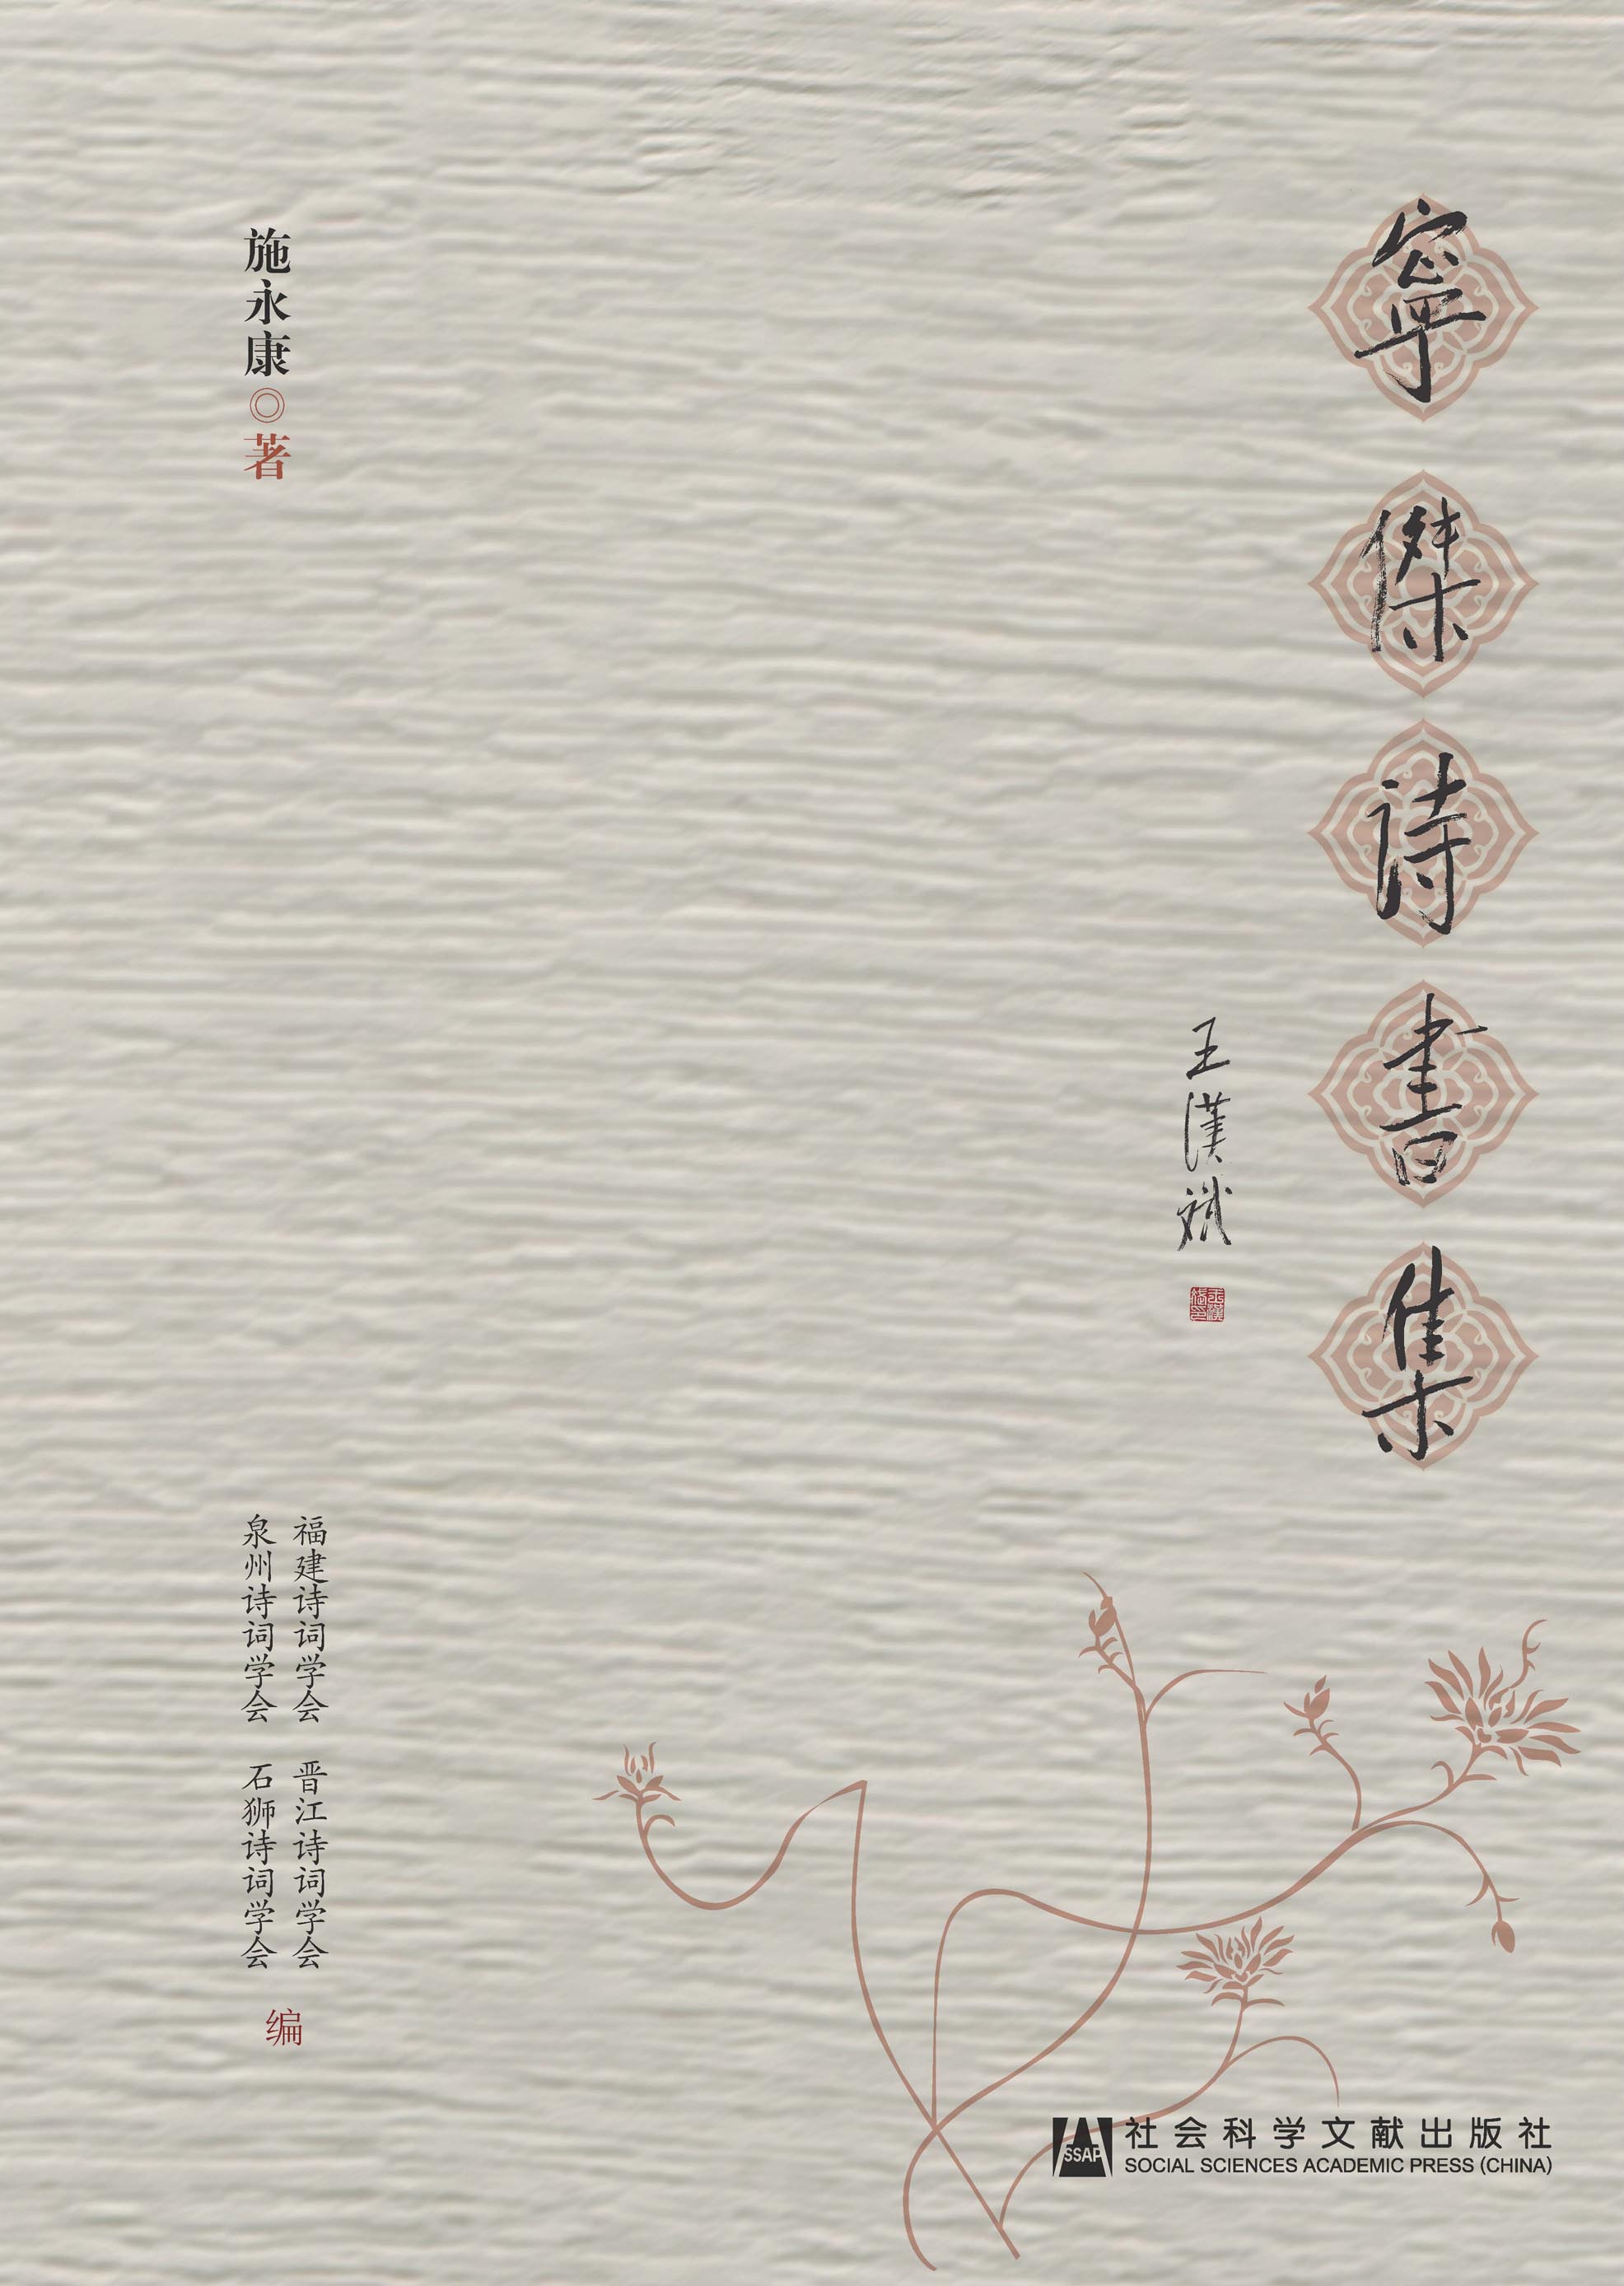 寧傑诗書集
王漢斌
施永康◎著
福建诗词学会 晋江诗词学会
泉州诗词学会 石狮诗词学会
编
SSAP
社会科学文献出版社
SOCIAL SCIENCES ACADEMIC PRESS (CHINA)